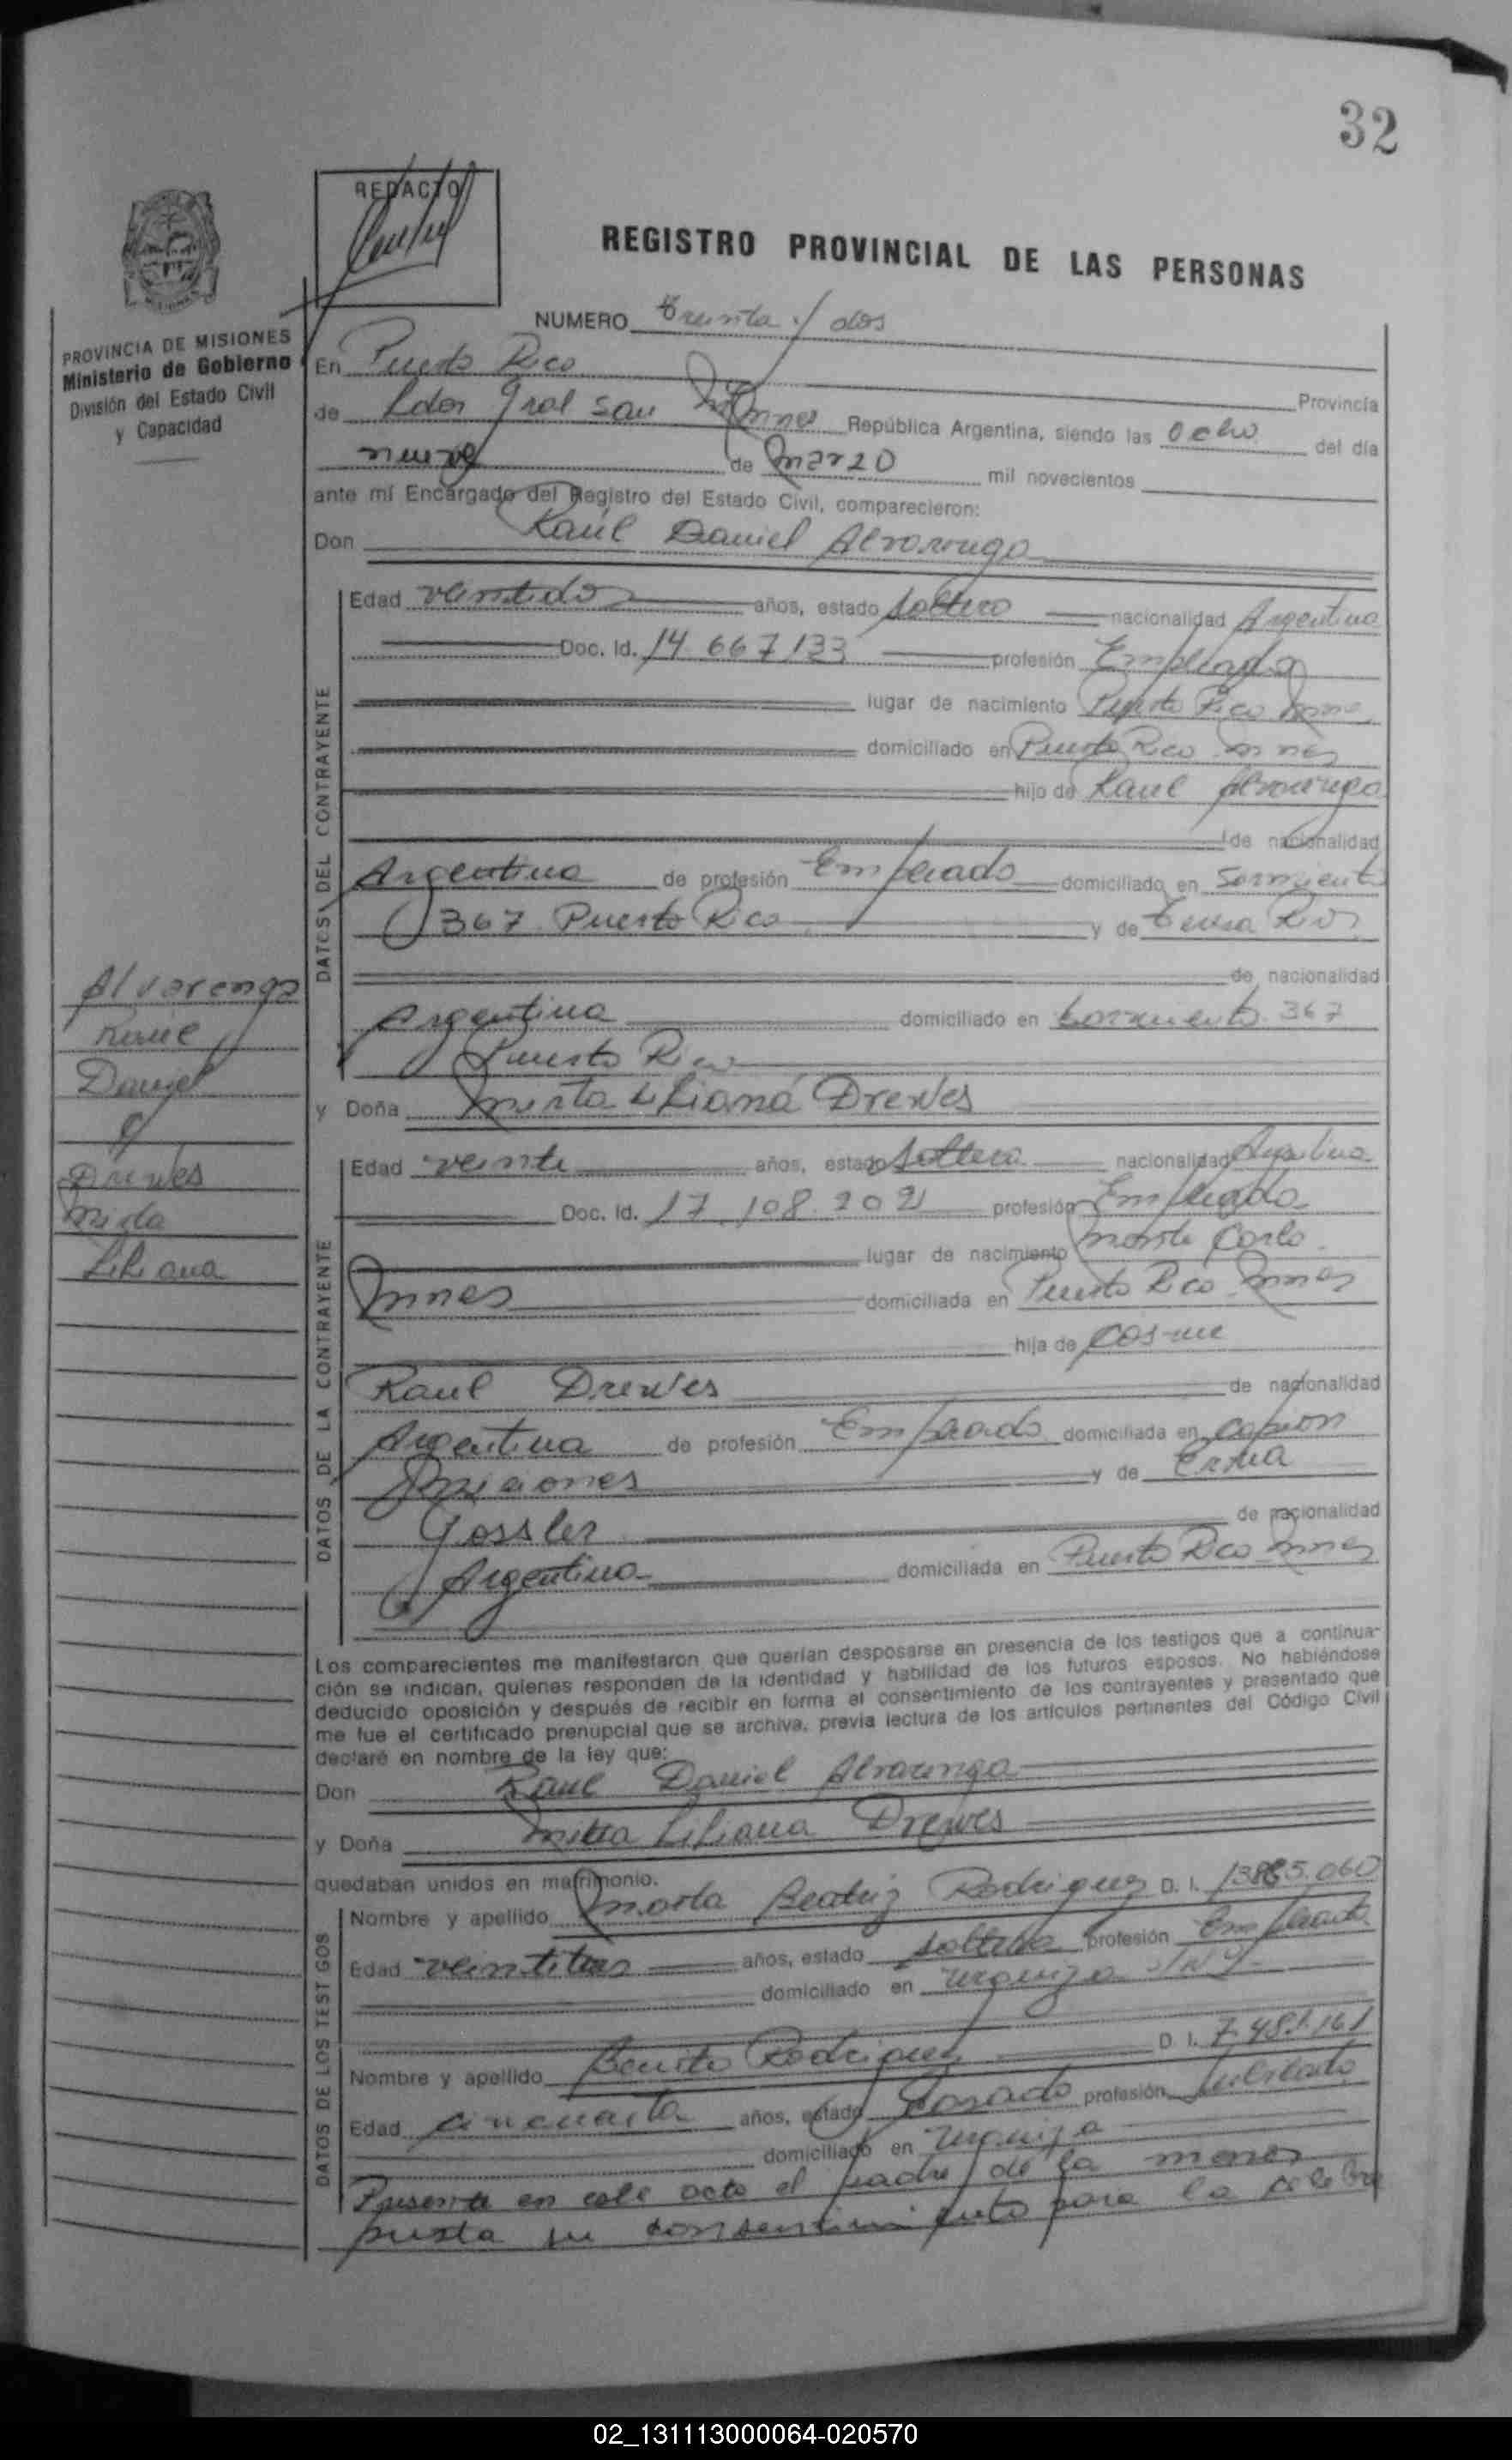 32
REDACTO
REGISTRO PROVINCIAL DE LAS PERSONAS
NUMERO Treinta y dos
PROVINCIA DE MISIONES
Ministerio de Gobierno
División del Estado Civil
y Capacidad
En Puerto Rico
Provincia
de Ldor Gral San Mnes República Argentina, siendo las Ocho del día
nueve de Marzo mil novecientos
ante mí Encargado del Registro del Estado Civil, comparecieron:
Don Raúl Daniel Alvarenga
DATOS DEL CONTRAYENTE
Edad veintidos años, estado Soltero nacionalidad Argentina
Doc. Id. 14.667.133 profesión Empleado
lugar de nacimiento Puerto Rico Mnes
domiciliado en Puerto Rico Mnes
hijo de Raul Alvarenga
de nacionalidad
Argentina de profesión Empleado domiciliado en Sarmiento
367 Puerto Rico y de Teresa Rios
de nacionalidad
Argentina domiciliado en Sarmiento 367
Puerto Rico
y Doña Mirta Liliana Drewes
Alvarenga
Raul
Daniel
y
Drewes
Mirta
Liliana
DATOS DE LA CONTRAYENTE
Edad veinte años, estado Soltera nacionalidad Argentina
Doc. Id. 17.108.202 profesión Empleada
lugar de nacimiento Monte Carlo
Mnes domiciliada en Puerto Rico Mnes
hija de Cosme
Raul Drewes de nacionalidad
Argentina de profesión Empleado domiciliada en Capiovi
Misiones y de Erna
Gossler de nacionalidad
Argentina domiciliada en Puerto Rico Mnes
Los comparecientes me manifestaron que querían desposarse en presencia de los testigos que a continua-
ción se indican, quienes responden de la identidad y habilidad de los futuros esposos. No habiéndose
deducido oposición y después de recibir en forma el consentimiento de los contrayentes y presentado que
me fue el certificado prenupcial que se archiva, previa lectura de los artículos pertinentes del Código Civil
declaré en nombre de la ley que:
Don Raul Daniel Alvarenga
y Doña Mirta Liliana Drewes
quedaban unidos en matrimonio.
DATOS DE LOS TESTIGOS
Nombre y apellido Marta Beatriz Rodriguez D. I. 13.885.060
Edad veintitres años, estado soltera profesión Empleada
domiciliado en Urquiza S/Nº
Nombre y apellido Benito Rodriguez D. I. 7.481.161
Edad cincuenta años, estado Casado profesión Jubilado
domiciliado en Urquiza
Presente en este acto el padre de la menor
presta su consentimiento para la celebra
02_131113000064-020570